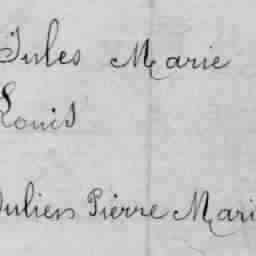 Jules Marie
Louis
Julien Pierre Mari